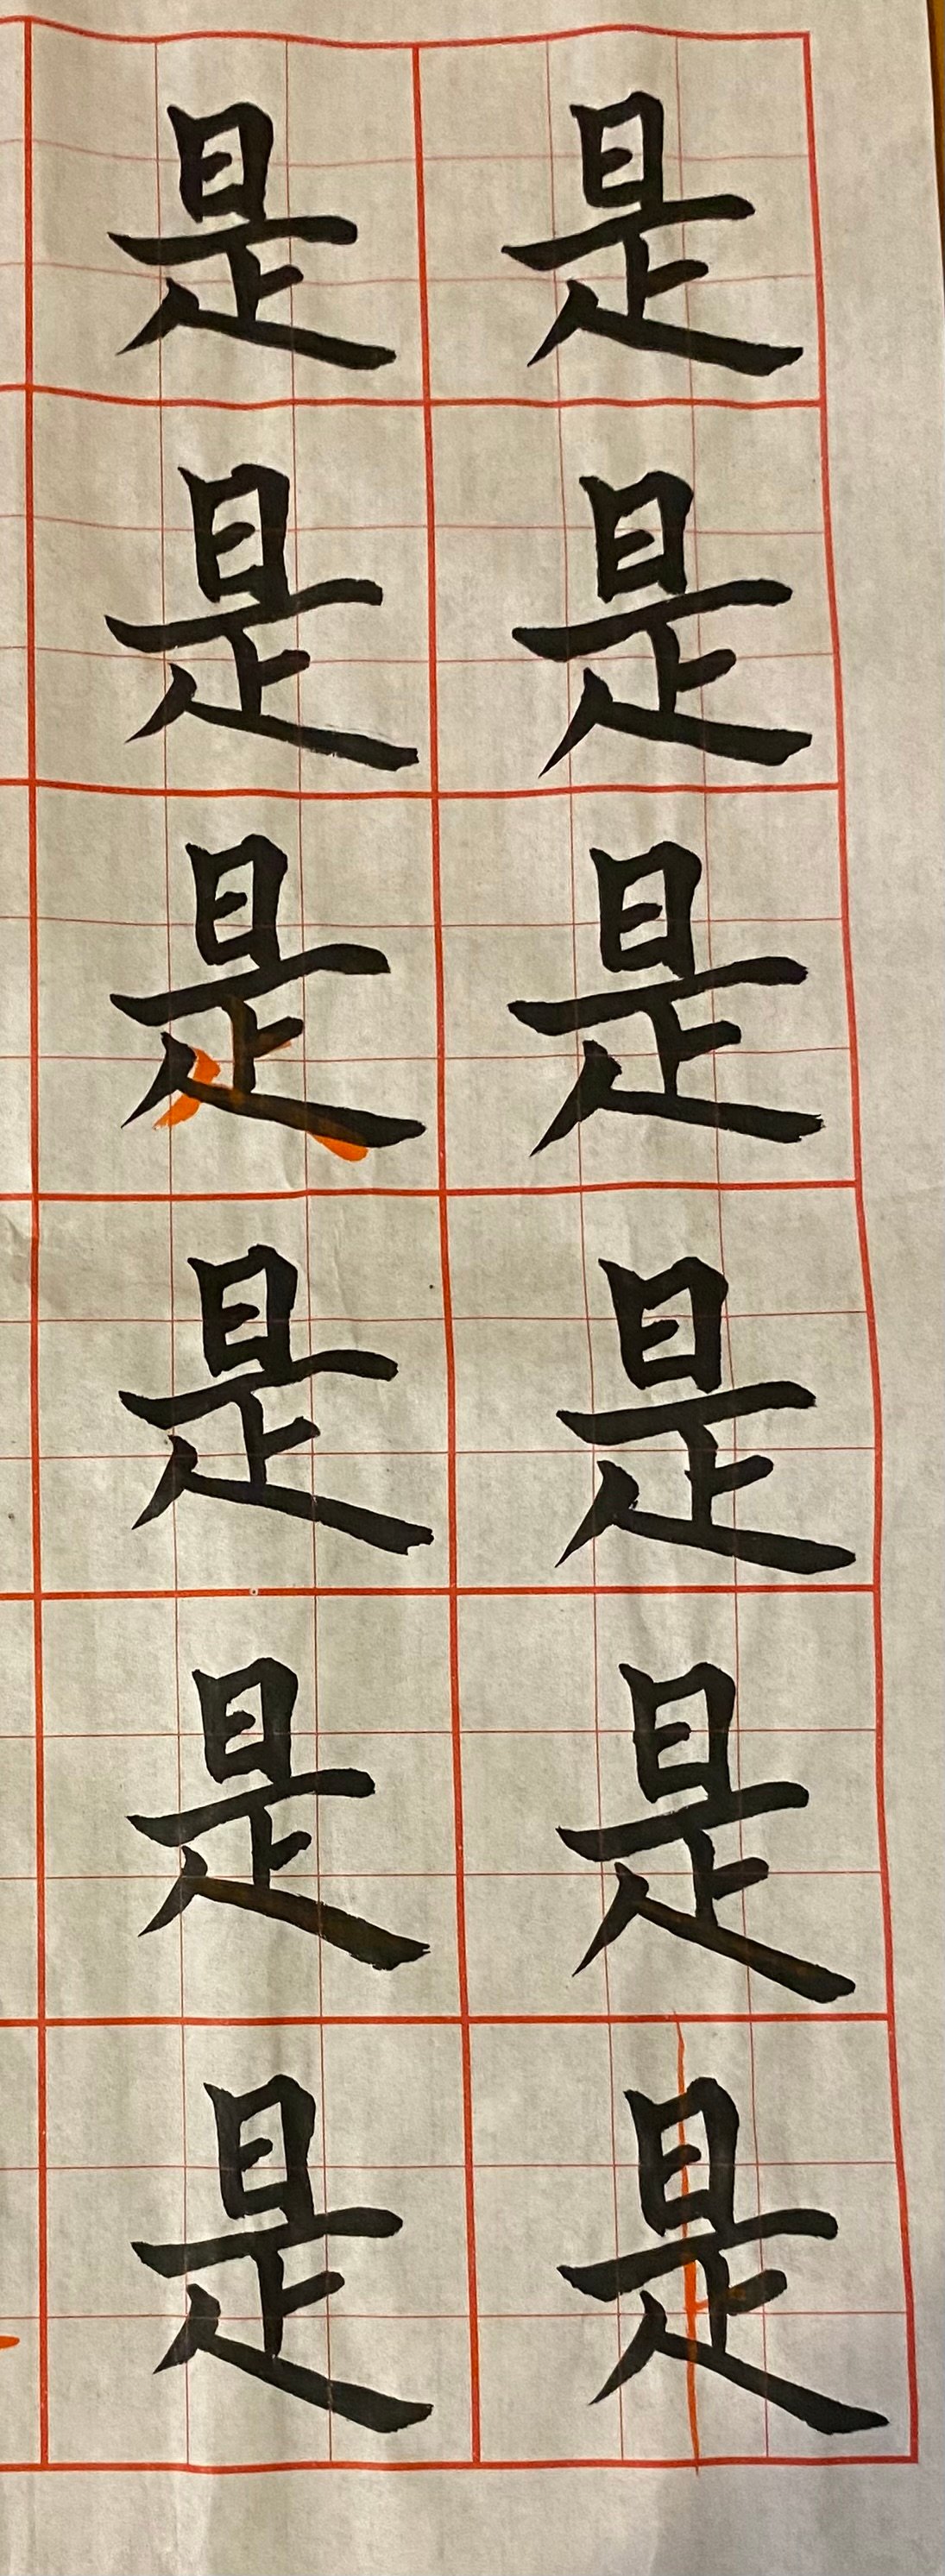 是是是是是是
是是是是是是